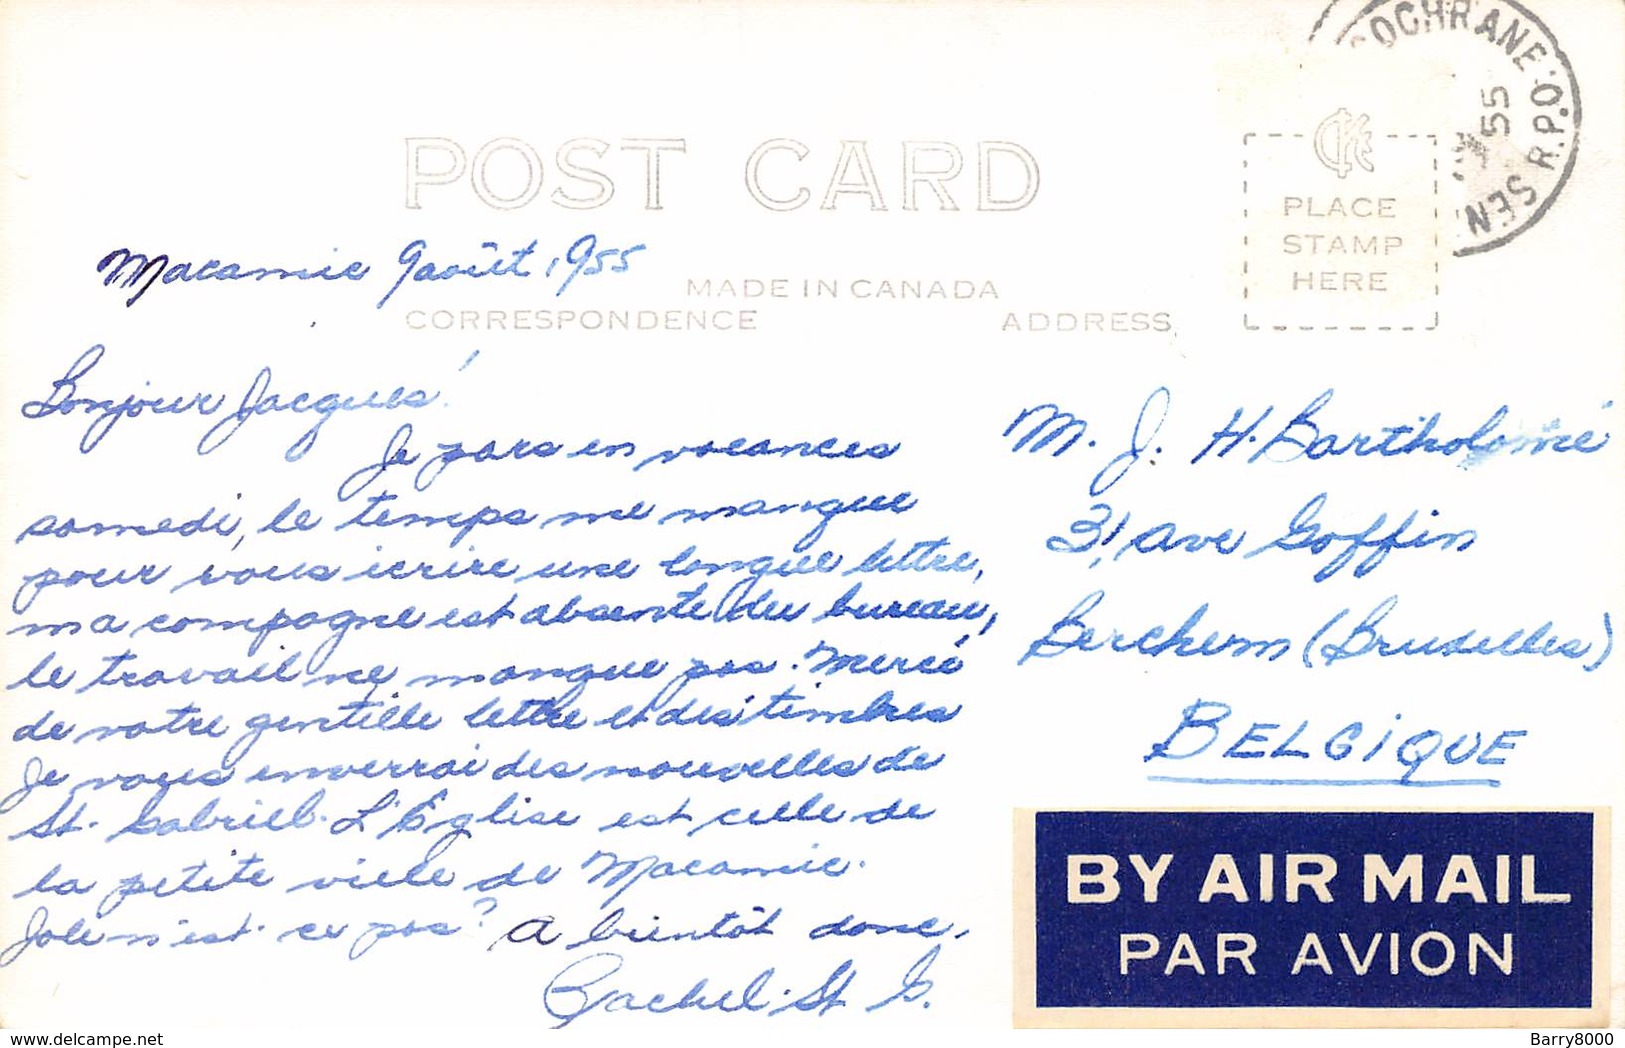 COCHRANE
R.P.O.
SEN
55
POST CARD
CK
PLACE
STAMP
HERE
Macamic 9 août, 1955
MADE IN CANADA
CORRESPONDENCE
ADDRESS
Bonjour Jacques!
Je pars en vacances
samedi, le temps me manque
pour vous écrire une longue lettre,
ma compagne est absente du bureau,
le travail ne manque pas. Merci
de votre gentille lettre et des timbres
Je vous enverrai des nouvelles de
St. Gabriel. L'Eglise est celle de
la petite ville de Macamic.
Jolie n'est-ce pas? A bientôt donc,
Rachel St G.
M. J. H. Bartholomé
31, ave Goffin
Berchem (Bruxelles)
BELGIQUE
BY AIR MAIL
PAR AVION
Barry8000